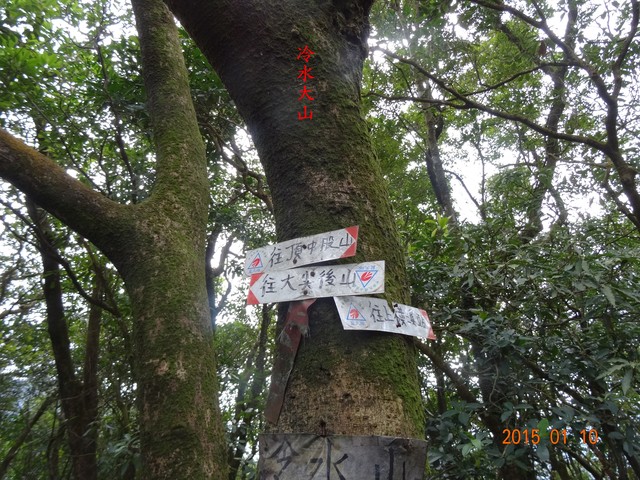 冷水大山
往頂中股山
往大尖後山
往上
冷水山
2015 01 10